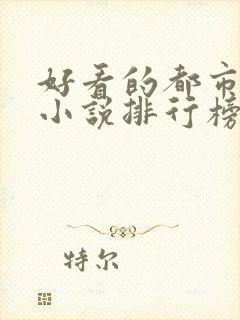 好看的都市
小说排行榜
特尔